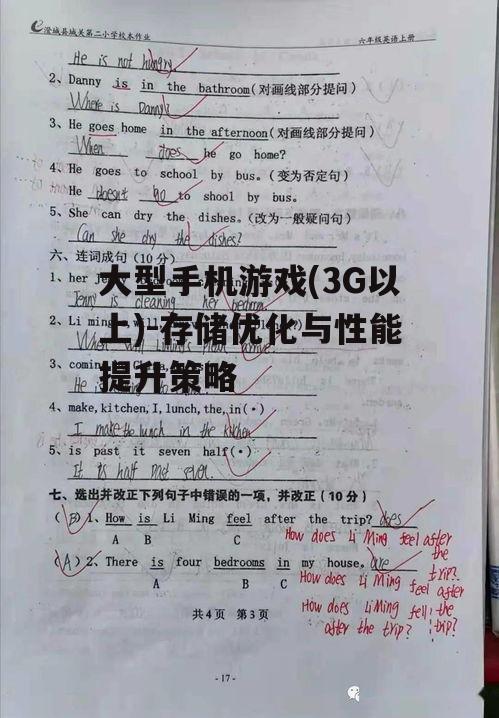 澄城县城关第二小学校本作业 六年级英语上册
He is not hungry
2、Danny is in the bathroom(对画线部分提问)
Where is Danny?
3、He goes home in the afternoon(对画线部分提问)
When does he go home?
4、He goes to school by bus。(变为否定句)
He doesn't go to shool by bus.
5、She can dry the dishes。(改为一般疑问句)
Can she dry the dishes?
六、连词成句(10分)
大型手机游戏(3G以
1、her
Jenny is cleaning her bedroom
2、Li ming
上)-存储优化与性能
3、coming
提升策略
4、make,kitchen,I,lunch,the,in(.)
I make the lunch in the kitchen
5、is past it seven half(.)
It is half past seven.
七、选出并改正下列句子中错误的一项,并改正(10分)
(B)1、How is Li Ming feel after the trip? does
A B C
How does Li Ming feel after the trip?
(A)2、There is four bedrooms in my house。are
A B C
How does Li Ming feel after the trip?
How does Li Ming fell after the trip?
共4页 第3页
-17-